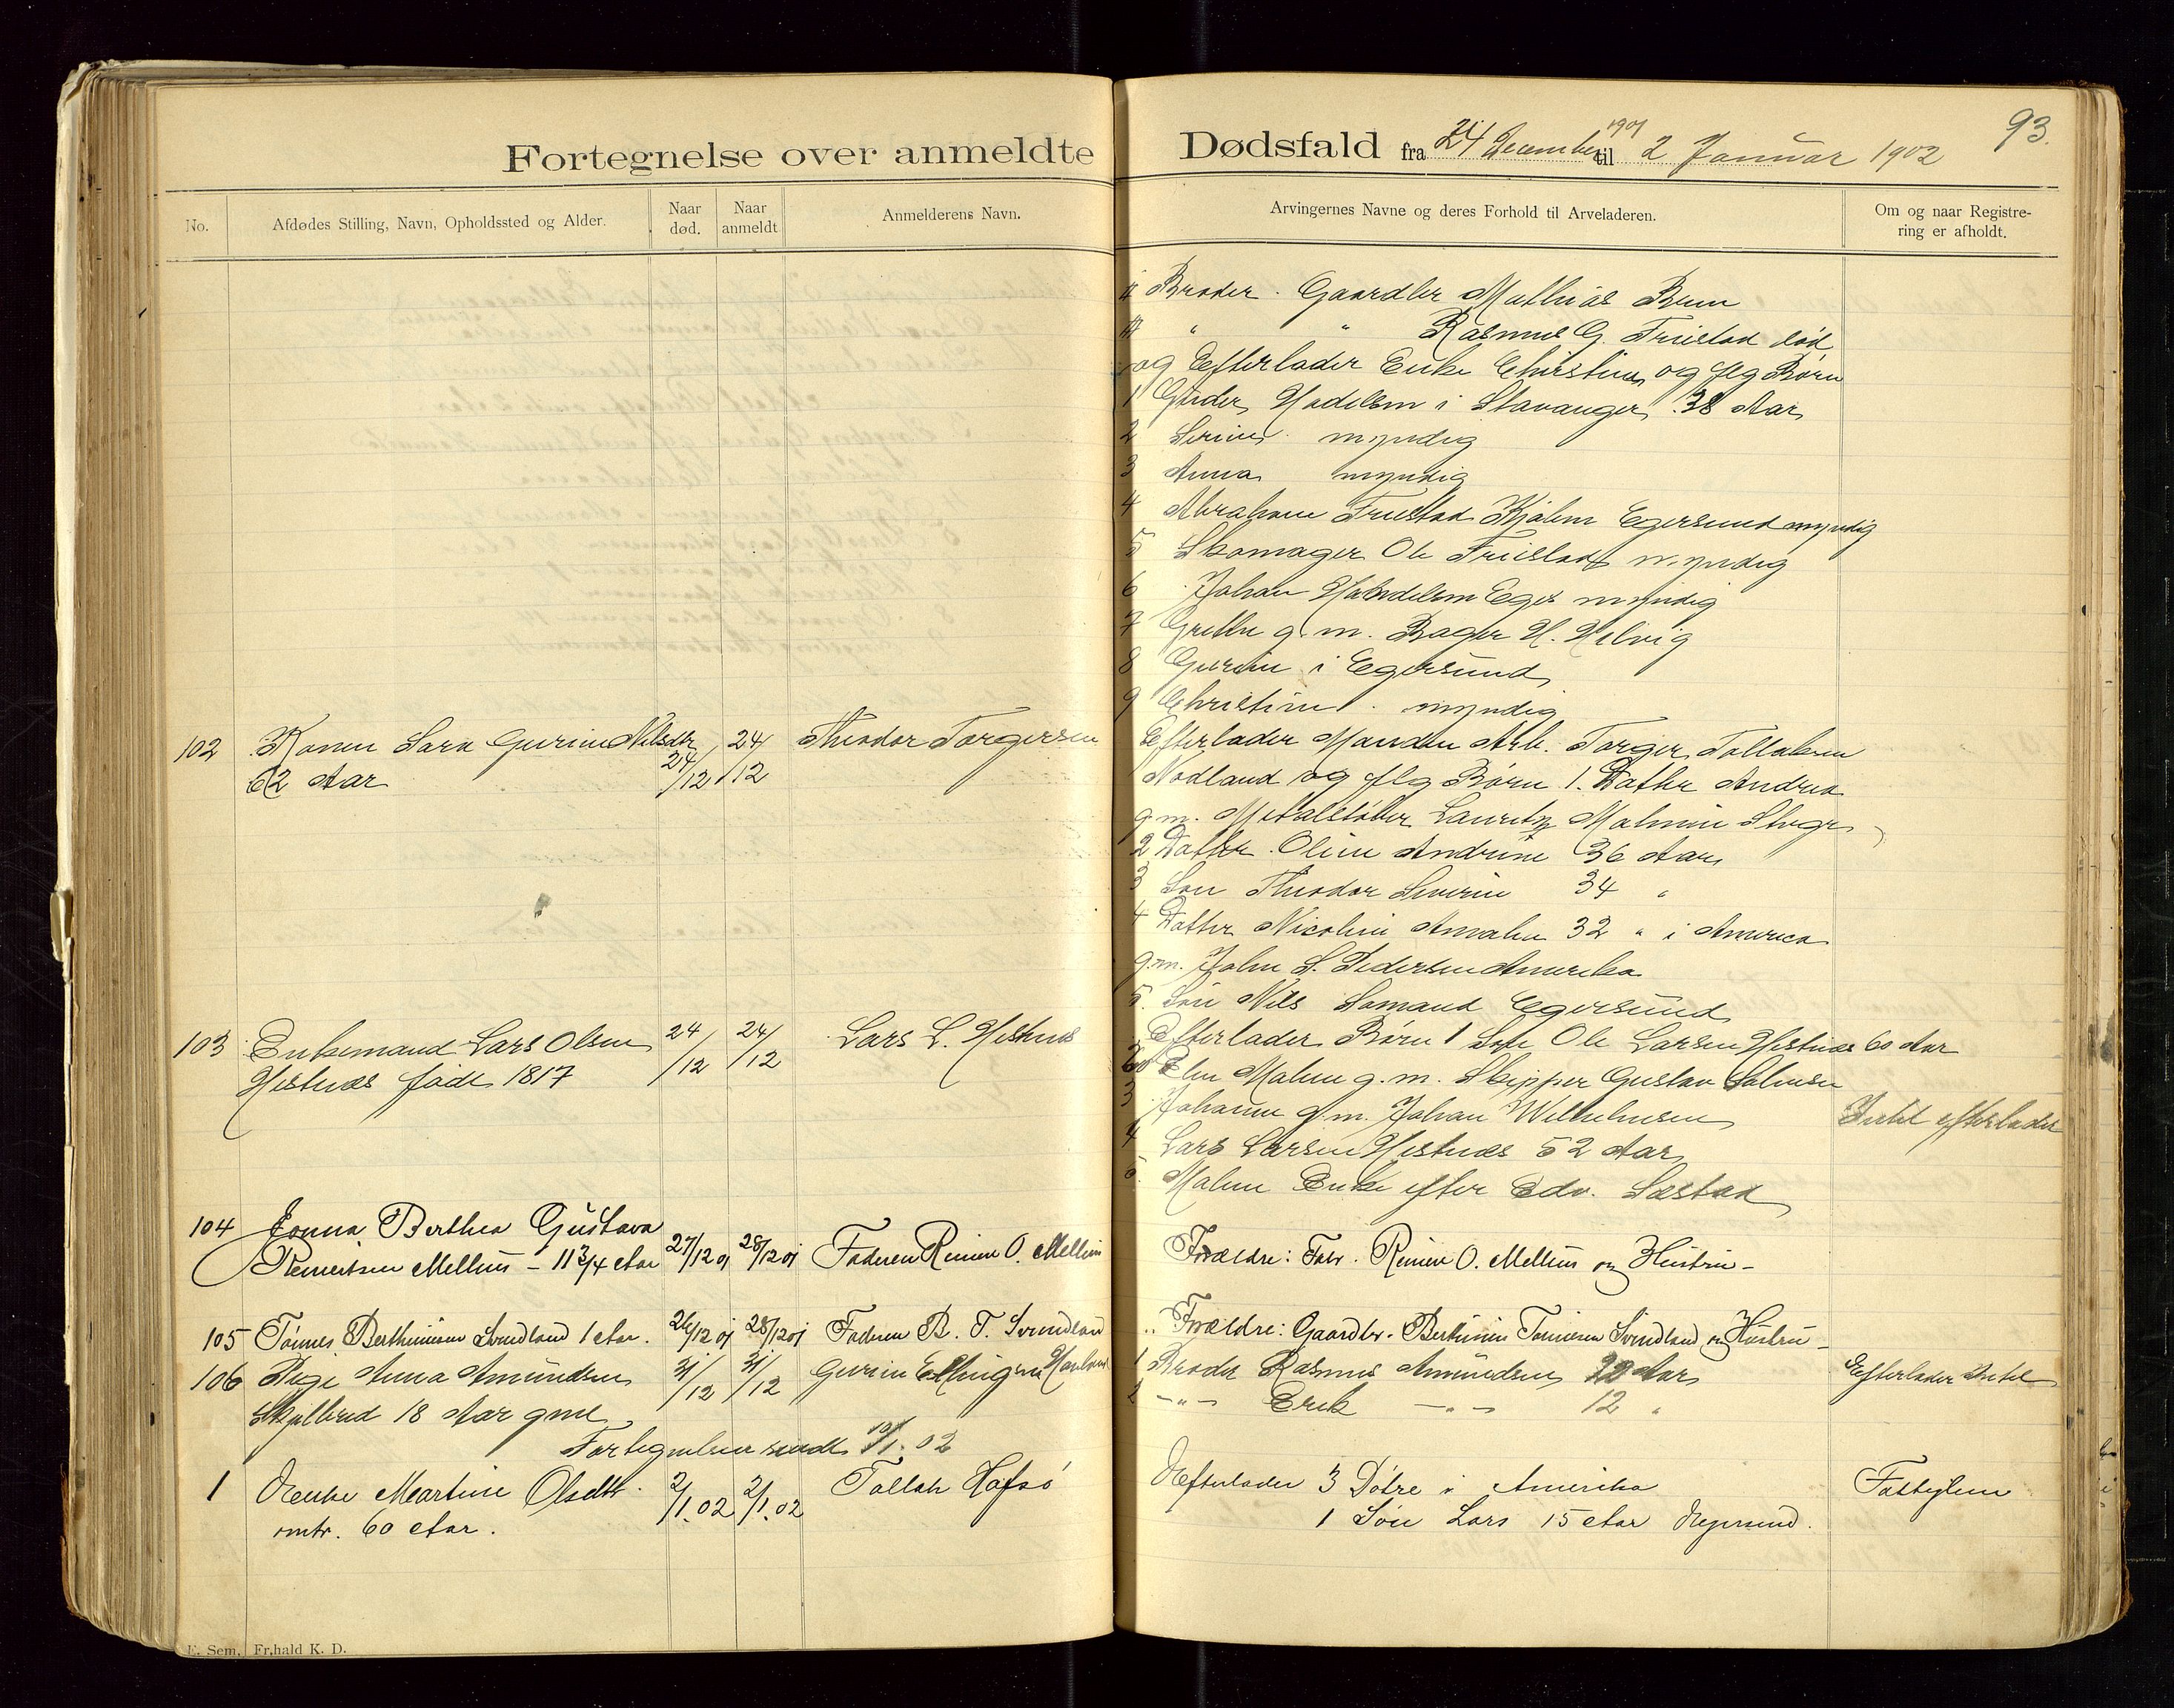 Fortegnelse over anmeldte Dødsfald fra 24 December 1901 til 2 Januar 1902
93.
No.
Afdødes Stilling, Navn, Opholdssted og Alder.
Naar død.
Naar anmeldt
Anmelderens Navn.
Arvingernes Navne og deres Forhold til Arveladeren.
Om og naar Registrering er afholdt.
Broder. Gaardbr Mathias
" " Rasmus G. Friestad død
og Efterlader Enke Christine og flg Børn
1 i Stavanger 38 Aar
2 Serine myndig
3 Anna myndig
4 Abraham Friestad Egersund myndig
5 Skomager Ole Friestad myndig
6 Johan Handelsm Eges myndig
7 Grethe g. m. Bager H. Helvig
8 Gurine i Egersund
9 Christine myndig
102 Konen Sara Gurine Nilsdtr
62 Aar
24/12
24/12
Theodor Torgersen
Efterlader Manden Arb. Torger Tollaksen
Nodland og flg Børn 1. Datter Andrea
g. m. Metalstøber Lauritz Malmin Stvgr
2 Datter Oline Andrine 36 Aar
3 Søn Theodor Severin 34 "
4 Datter Nicoline Amalie 32 " i America
g. m. John S. Pedersen Amerika
5. Søn Nils Sømand Egersund
103 Enkemand Lars Olsen
Hestnes født 1817
24/12
24/12
Lars L. Hestnes
Efterlader Børn 1 Søn Ole Larsen Hestnes 60 Aar
Malene g. m. Skipper Gustav Salvesen
3 Johanne g. m. Johan Wilhelmsen
Intet efterladt
4 Lars Larsen Hestnes 52 Aar
5. Malene Enke efter Edv. Sæstad
104 Jonna Berthea Gustava
Reinertsen Mellum - 11 3/4 Aar
27/12 01
28/12 01
Faderen Reinert O. Mellum
Forældre: Fabr. Reinert O. Mellum og Hustru -
105 Tønnes Berthinusen Svindland 1 Aar.
26/12 01
28/12 01
Faderen B. T. Svindland
Forældre: Gaardbr. Berthinius Tønnesen Svindland og Hustru -
106 Pige Anna Amundsen
Skjelbred 18 Aar gml
31/12
31/12
Gurine
1 Broder Rasmus Amundsen Aar
2 -"- Erik -"- 12 "
Efterlader Intet
Fortegnelsen sendt /1. 02
1 Enke Martine Olsdtr.
omtr. 60 Aar.
2/1. 02
2/1. 02
Tollak Hafsø
Efterlader 3 Døtre i Amerika
1 Søn Lars 15 Aar Egersund.
Fattiglem
E. Sem, Fr.hald K. D.